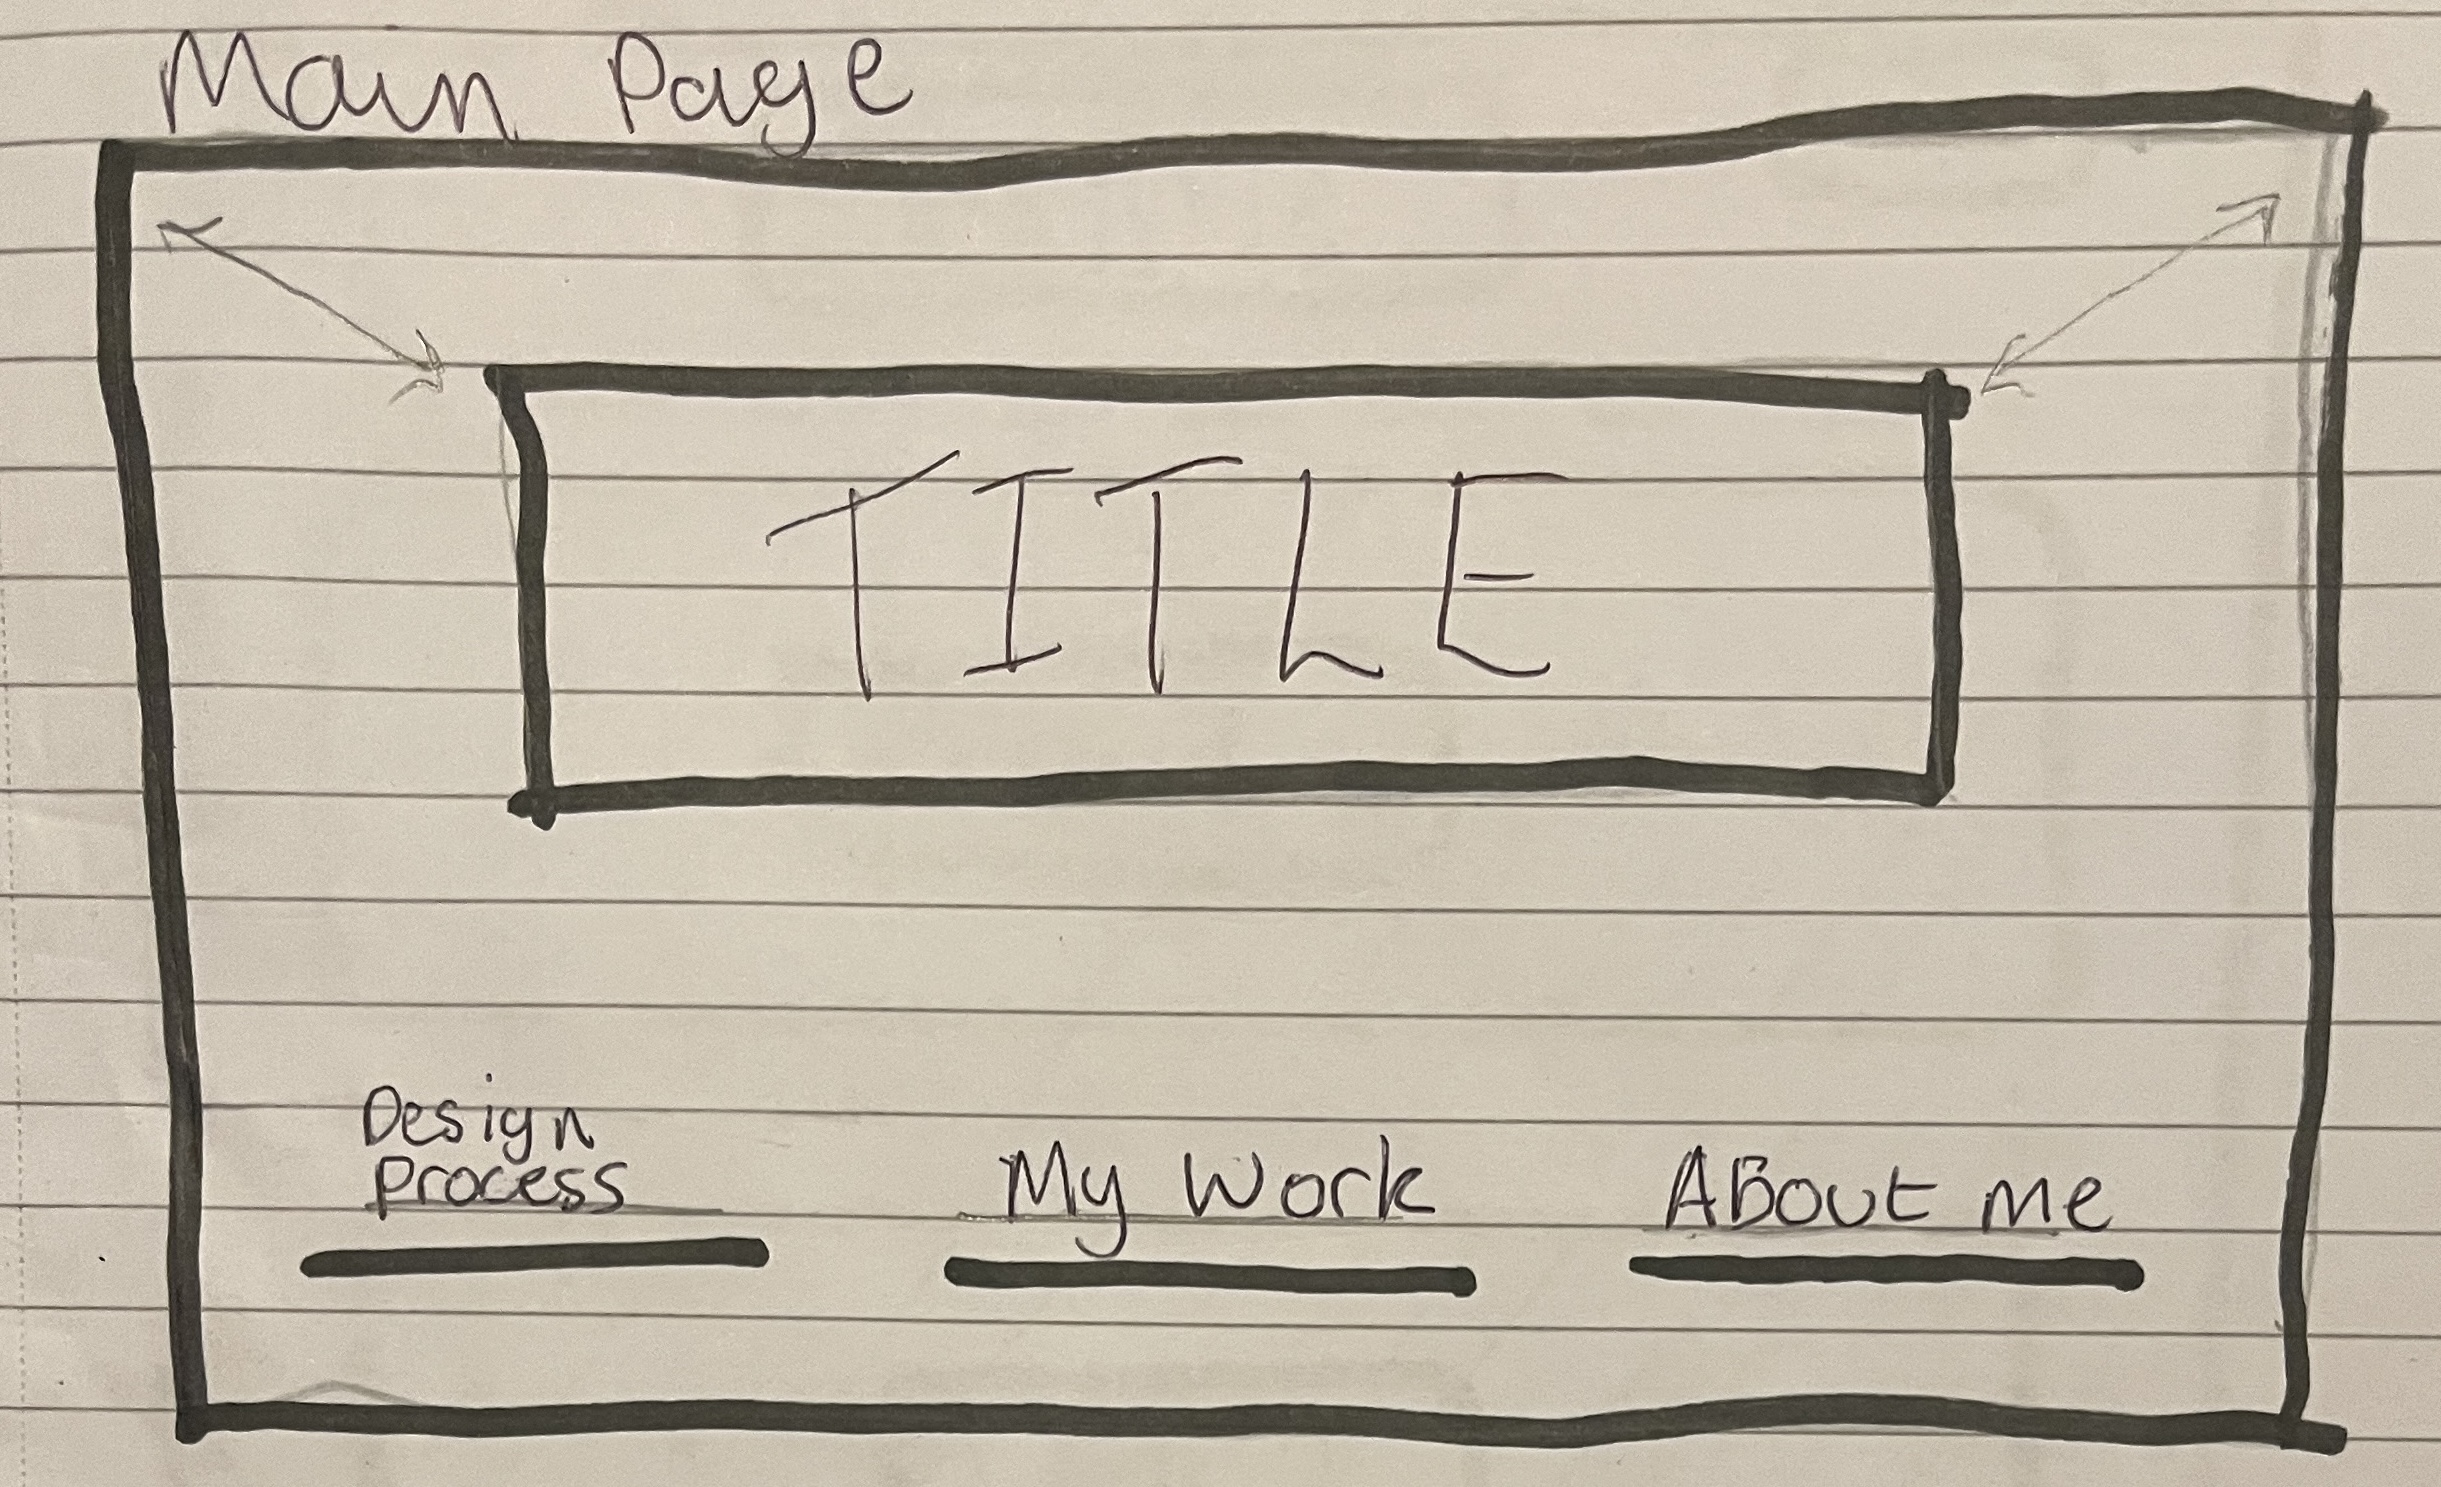 Main Page
TITLE
Design
Process
My Work
ABout me